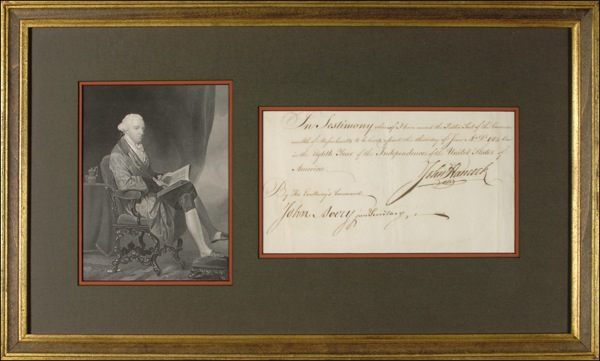 In Testimony whereof I have caused the Public Seal of the Common
wealth of Massachusetts to be hereto affixed this day of June A.D. 1784 and
in the Eighth Year of the Independence of the United States of
America.
John Hancock
By His Excellency's Command
John Avery jun Secretary